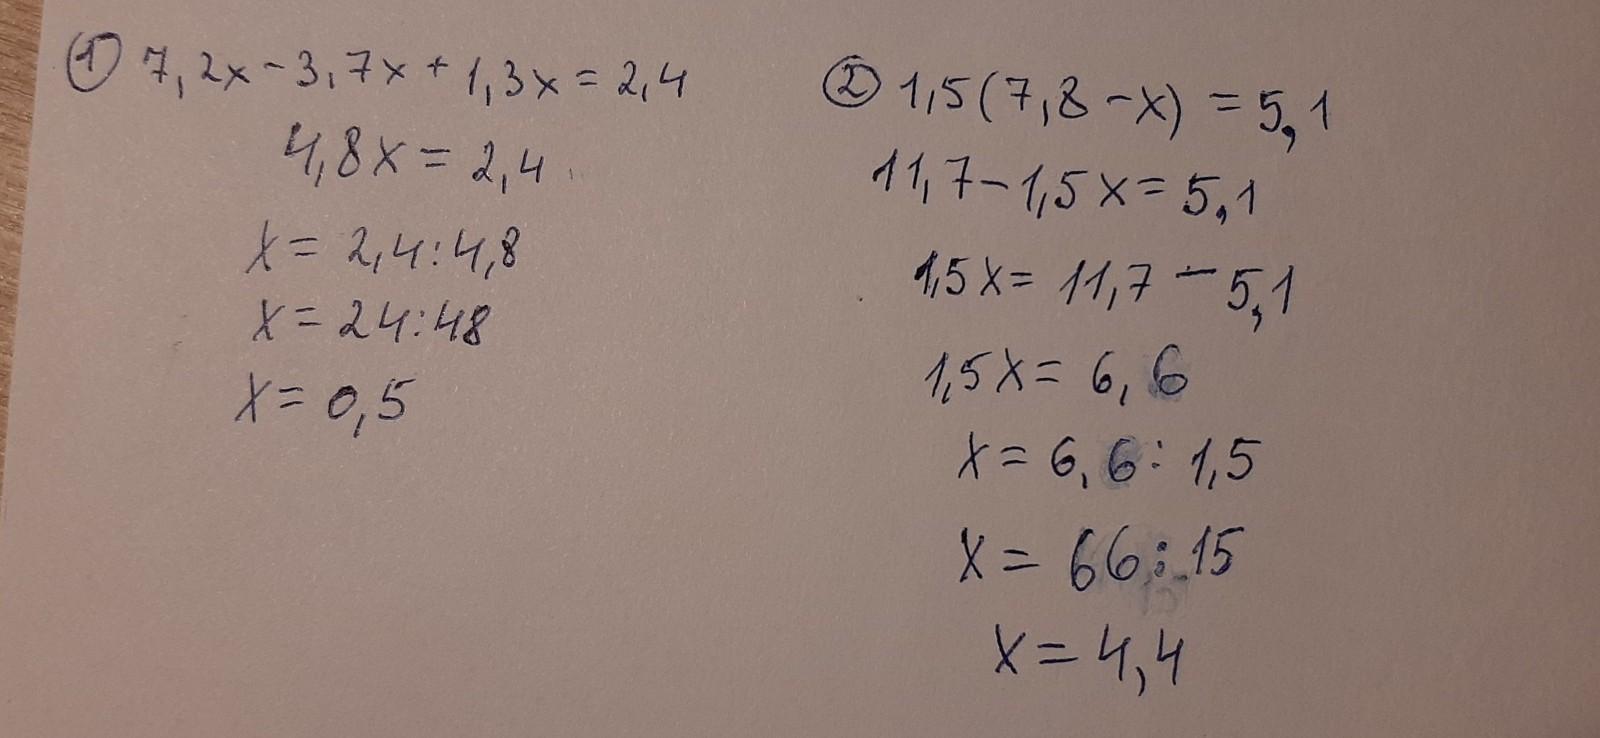 ① 7,2x-3,7x+1,3x=2,4
4,8x=2,4
x=2,4:4,8
x=24:48
x=0,5
② 1,5(7,8-x)=5,1
11,7-1,5x=5,1
1,5x=11,7-5,1
1,5x=6,6
x=6,6:1,5
x=66:15
x=4,4